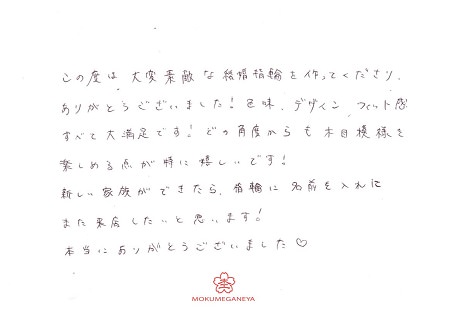 この度は大変素敵な結婚指輪を作ってくださり、
ありがとうございました！色味、デザイン、フィット感
すべて大満足です！どの角度からも木目模様を
楽しめる点が特に嬉しいです！
新しい家族ができたら、指輪に名前を入れに
また来店したいと思います！
本当にありがとうございました♡
MOKUMEGANEYA